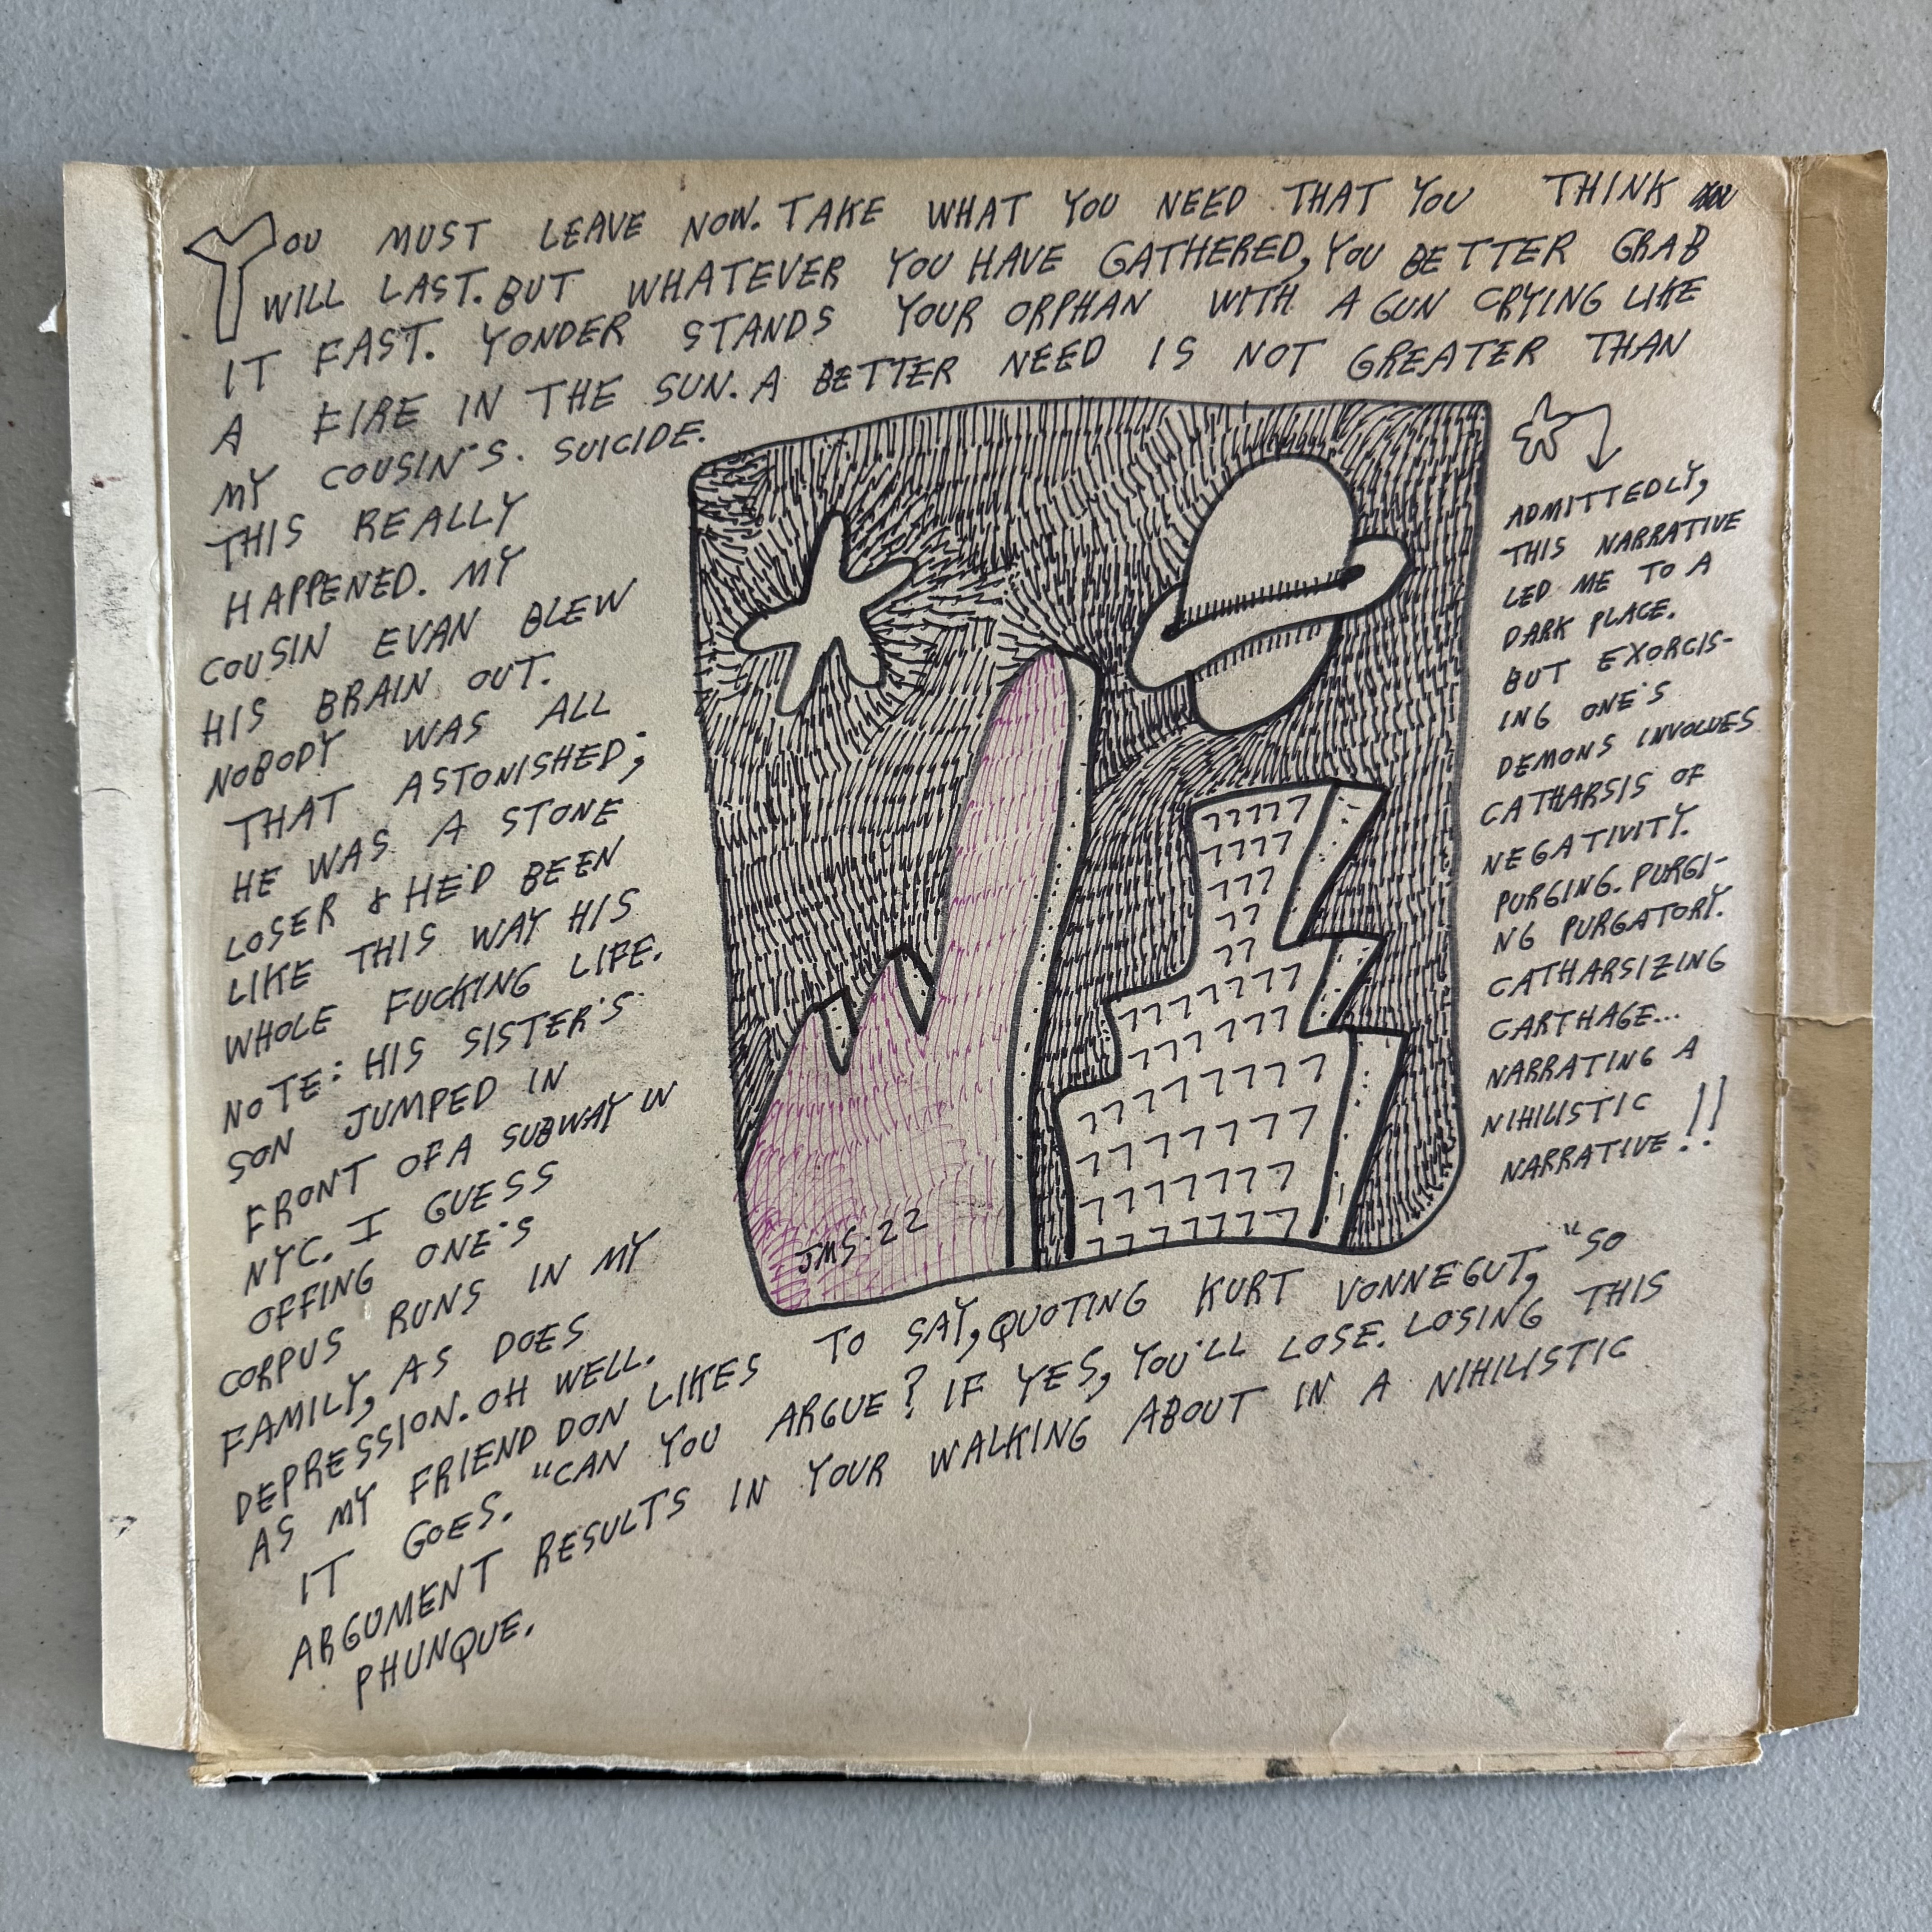 YOU MUST LEAVE NOW. TAKE WHAT YOU NEED THAT YOU THINK
WILL LAST. BUT WHATEVER YOU HAVE GATHERED, YOU BETTER GRAB
IT FAST. YONDER STANDS YOUR ORPHAN WITH A GUN CRYING LIKE
A FIRE IN THE SUN. A BETTER NEED IS NOT GREATER THAN
MY COUSIN'S. SUICIDE.
THIS REALLY
HAPPENED. MY
COUSIN EVAN BLEW
HIS BRAIN OUT.
NOBODY WAS ALL
THAT ASTONISHED;
HE WAS A STONE
LOSER & HE'D BEEN
LIKE THIS WAY HIS
WHOLE FUCKING LIFE.
NOTE: HIS SISTER'S
SON JUMPED IN
FRONT OF A SUBWAY IN
NYC. I GUESS
OFFING ONE'S
CORPUS RUNS IN MY
FAMILY, AS DOES
DEPRESSION. OH WELL.
AS MY FRIEND DON LIKES TO SAY, QUOTING KURT VONNEGUT, "SO
IT GOES. "CAN YOU ARGUE? IF YES, YOU'LL LOSE. LOSING THIS
ARGUMENT RESULTS IN YOUR WALKING ABOUT IN A NIHILISTIC
PHUNQUE.
ADMITTEDLY,
THIS NARRATIVE
LED ME TO A
DARK PLACE.
BUT EXORCIS-
ING ONE'S
DEMONS INVOLVES
CATHARSIS OF
NEGATIVITY.
PURGING. PURGI-
NG PURGATORY.
CATHARSIZING
CARTHAGE...
NARRATING A
NIHILISTIC
NARRATIVE!!
77777
7777
777
77
77
7777777
7777777
7777777
7777777
7777777
7777777
JMS·22